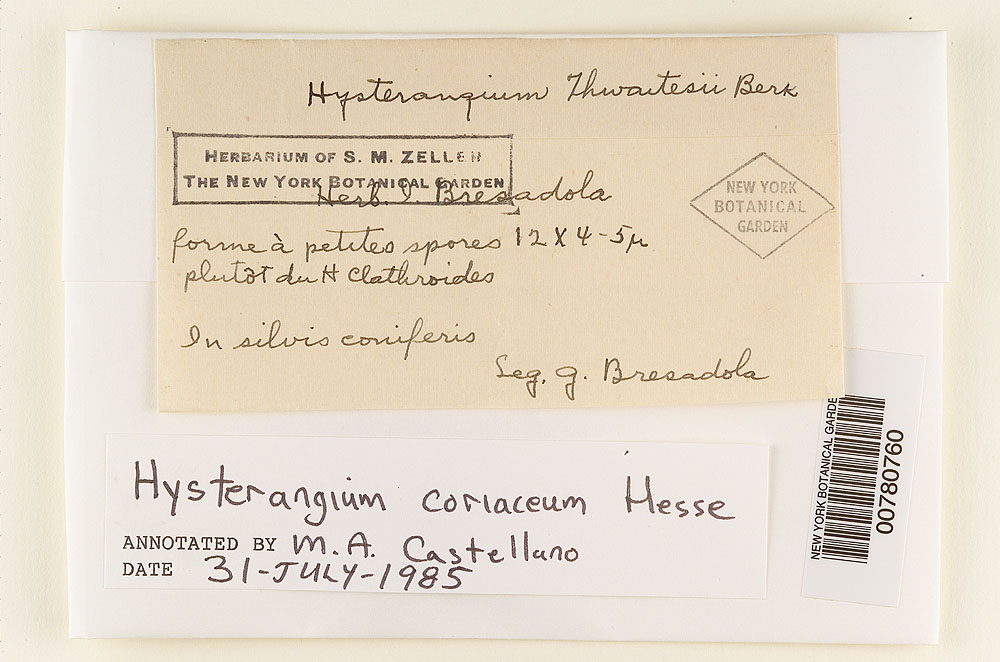 Hysterangium Thwaitesii Berk
HERBARIUM OF S. M. ZELLER
THE NEW YORK BOTANICAL GARDEN
Herb. J. Bresadola
NEW YORK
BOTANICAL
GARDEN
forme à petites spores 12 X 4-5µ
plutôt du H Clathroides
In silvis coniferis
Leg. g. Bresadola
Hysterangium coriaceum Hesse
ANNOTATED BY M.A. Castellano
DATE 31-JULY-1985
NEW YORK BOTANICAL GARDE
00780760